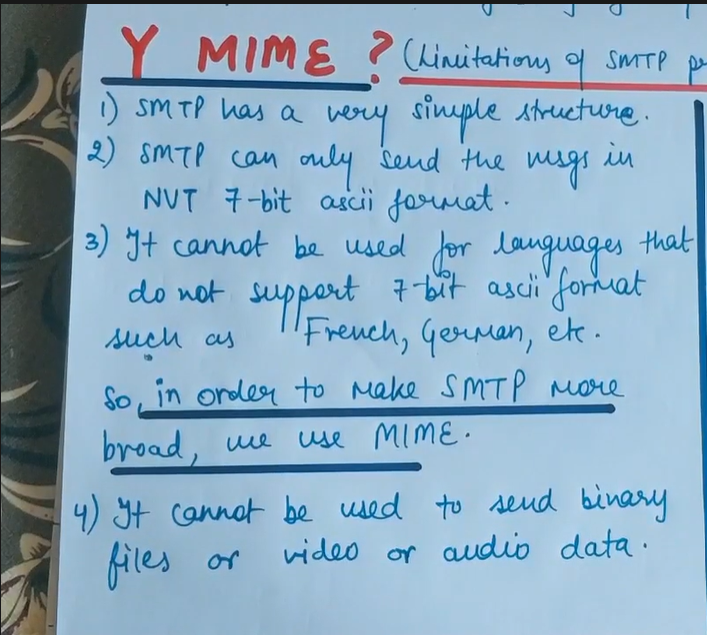 Y MIME ? (Limitations of SMTP
1) SMTP has a very simple structure.
2) SMTP can only send the msgs in
NVT 7-bit ascii format.
3) It cannot be used for languages that
do not support 7-bit ascii format
such as French, German, etc.
So, in order to make SMTP more
broad, we use MIME.
4) It cannot be used to send binary
files or video or audio data.